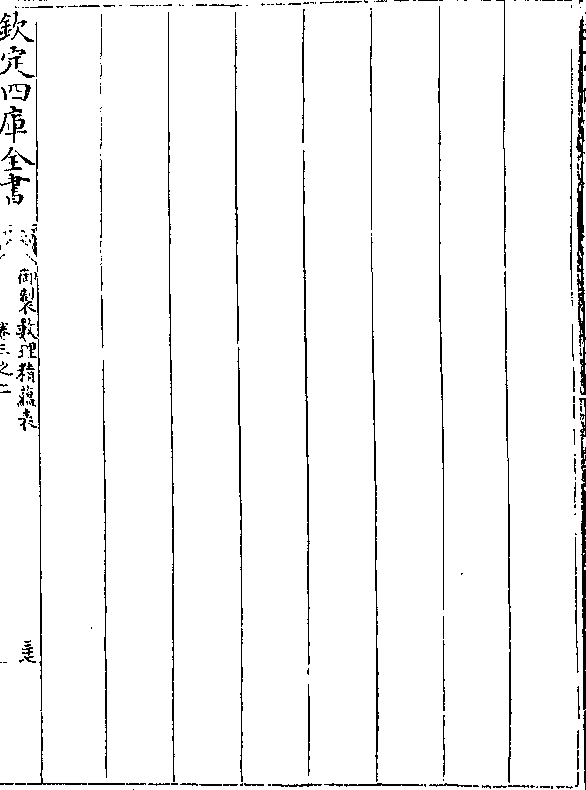 欽定四庫全書
御製數理精藴表
卷三之二